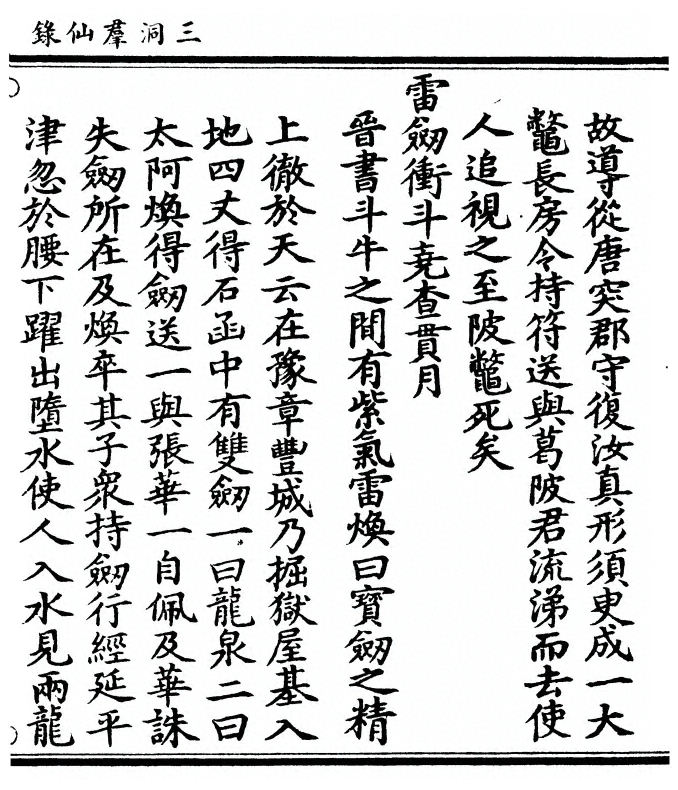 三洞羣仙錄
故導從唐突郡守復汝真形須臾成一大
鼈長房令持符送與葛陂君流涕而去使
人追視之至陂鼈死矣
雷劒衝斗堯查貫月
晉書斗牛之間有紫氣雷煥曰寶劒之精
上徹於天云在豫章豐城乃掘獄屋基入
地四丈得石函中有雙劒一曰龍泉二曰
太阿煥得劒送一與張華一自佩及華誅
失劒所在及煥卒其子衆持劒行經延平
津忽於腰下躍出墮水使人入水見兩龍